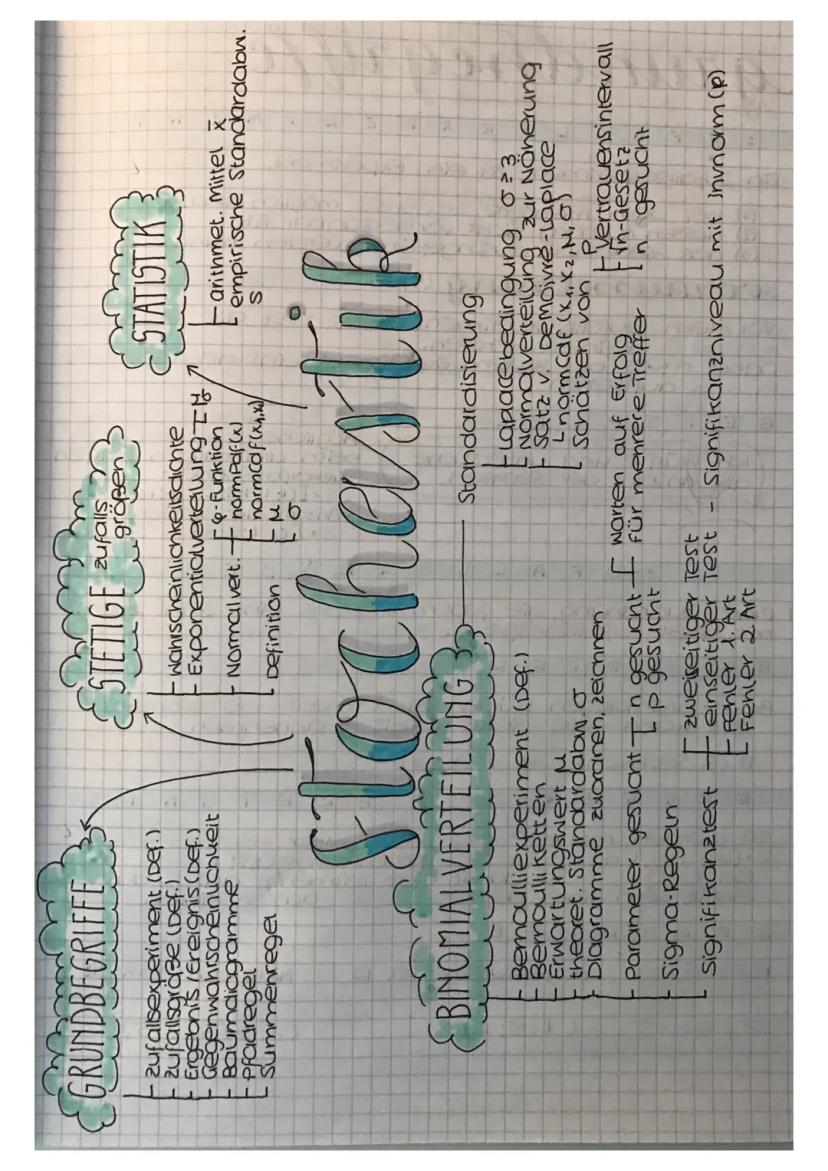 GRUNDBEGRIFFE
Zufallsexperiment (Def.)
Zufallsgröße (Def.)
Ergebnis/Ereignis (Def.)
Gegenwahrscheinlichkeit
Baumdiagramme
Pfadregel
Summenregel
STETIGE zufalls
größen
Wahrscheinlichkeitsdichte
Exponentialverteilung
Normalvert.
φ-Funktion
normPdf(x)
normcdf(x₁,x₂)
μ
σ
Definition
STATISTIK
arithmet. Mittel x̄
empirische Standardabw.
S
Stochastik
BINOMIALVERTEILUNG
Bernoulliexperiment (Def.)
Bernoulliketten
Erwartungswert μ
theoret. Standardabw. σ
Diagramme zuordnen, zeichnen
Parameter gesucht
n gesucht
p gesucht
Warten auf Erfolg
für mehrere Treffer
Sigma-Regeln
Signifikanztest
zweiseitiger Test
einseitiger Test - Signifikanzniveau mit invnorm(p)
Fehler 1. Art
Fehler 2. Art
Standardisierung
Laplacebedingung σ ≥ 3
Normalverteilung zur Näherung
Satz v. Demoivre-Laplace
normcdf (x₁, x₂, μ, σ)
Schätzen von p
Vertrauensintervall
√n-Gesetz
n gesucht